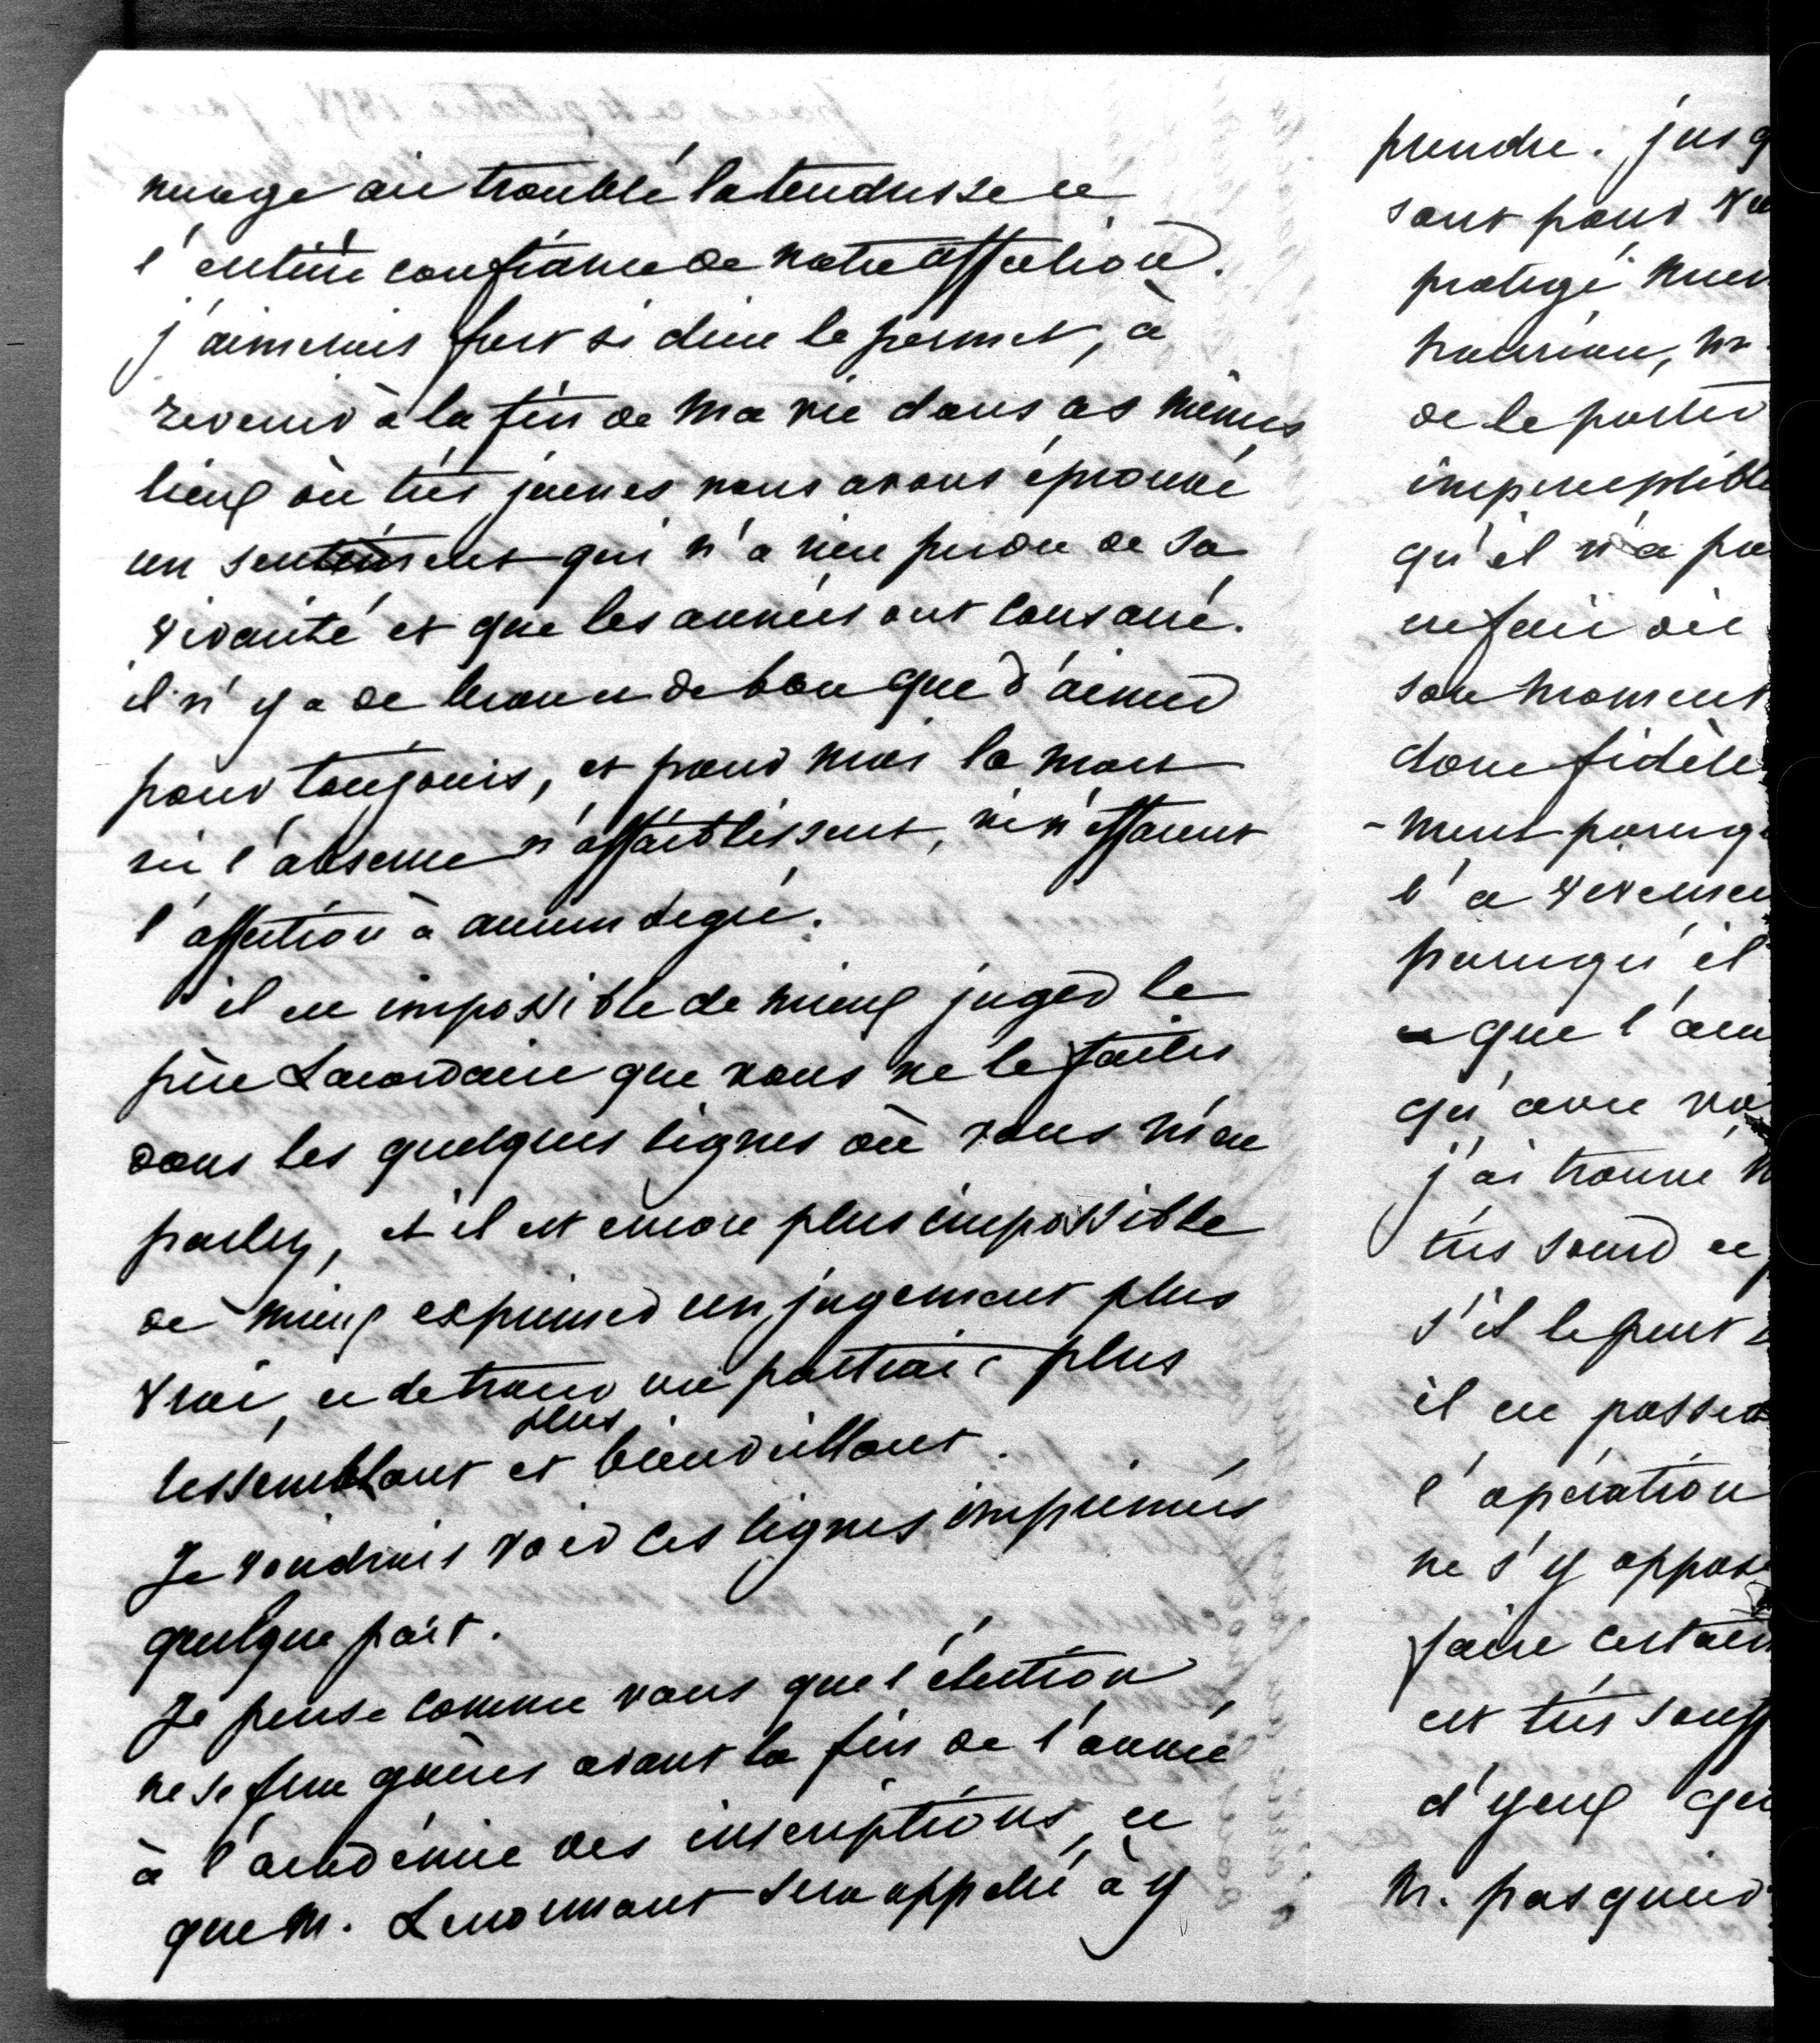 nuage ait troublé la tendresse et
l'entière confiance de notre affection.
j'aimerais fort si dieu le permet, à
revenir à la fin de ma vie dans ces mêmes
lieux où très jeunes nous avons éprouvé
un sentiment qui n'a rien perdu de sa
vivacité et que les années ont consacré.
il n'y a de beau et de bon que d'aimer
pour toujours, et pour moi la mort
ni l'absence n'affaiblissent, ni n'effacent
l'affection à aucun degré.
il est impossible de mieux juger le
père Lacordaire que vous ne le faites
dans les quelques lignes où vous m'en
parlez, et il est encore plus impossible
de mieux exprimer un jugement plus
vrai, et de tracer un portrait plus
ressemblant et plus bienveillant.
Je voudrais voir ces lignes imprimées
quelque part.
Je pense comme vous que l'élection
ne se fera guères avant la fin de l'année
à l'académie des inscriptions, et
que M. Lenormant sera appelé à y
prendre. jusq
sont pour
protégé
de le porter
imperceptible
qu'il n'a pu
son moment
donc fidèle
-ment parceq
l'a
parcequ'il
que l'am
qu'avec vo
j'ai trouvé
très sourd et
s'il le peut
il en passer
l'opération
ne s'y oppose
faire certain
est très souff
d'yeux qu
M. pasquier